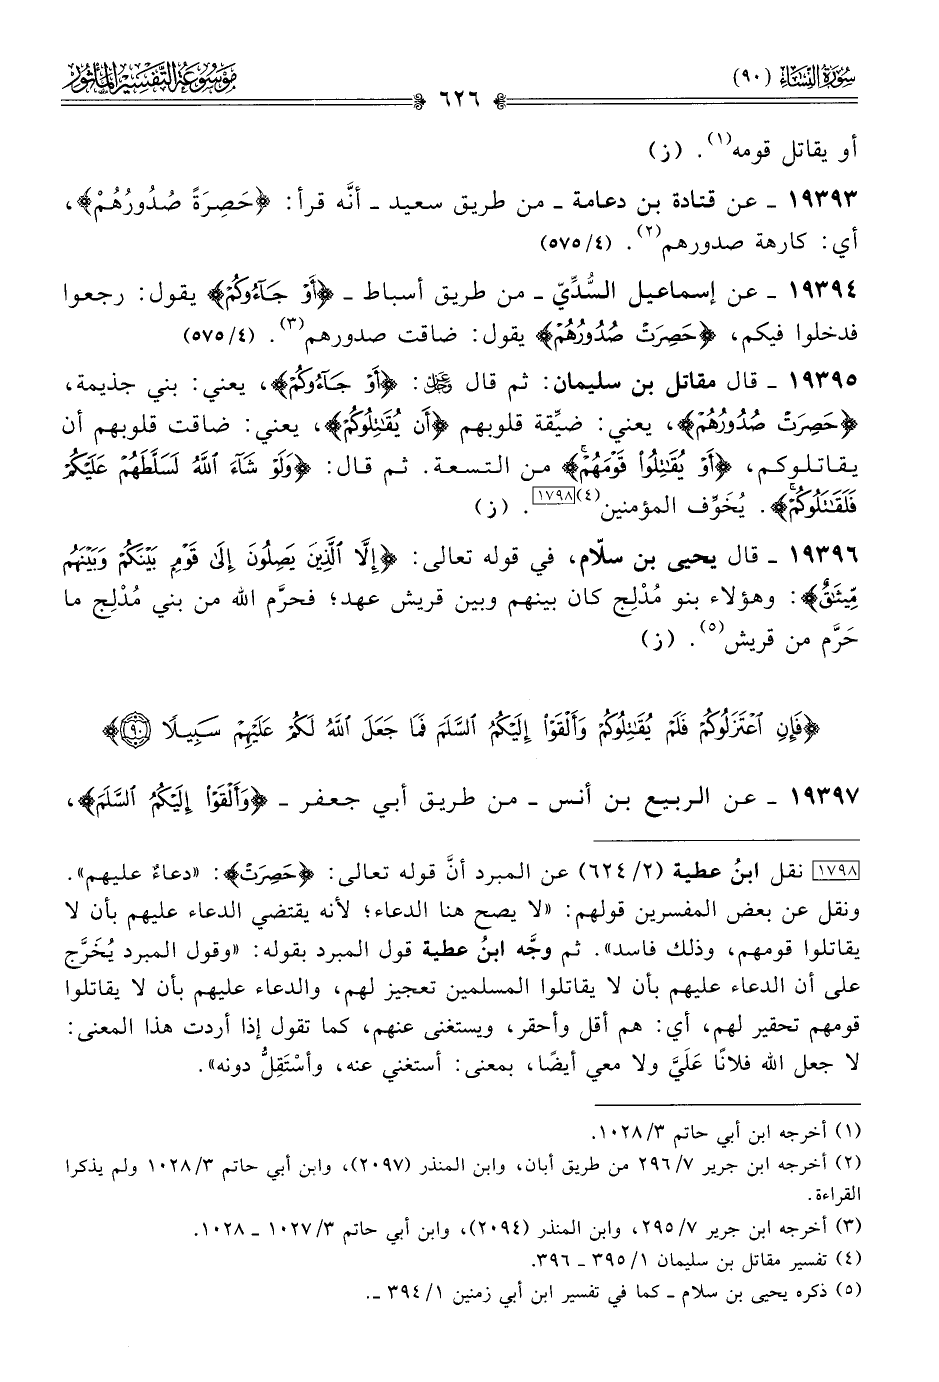 سُورَةُ النِّسَاءِ (٩٠)
٦٢٦
مَوْسُوعَةُ التَّفْسِيرِ المَأْثُورِ
أو يقاتل قومه(١). (ز)
١٩٣٩٣ ـ عن قتادة بن دعامة ـ من طريق سعيد ـ أنَّه قرأ: ﴿حَصِرَةً صُدُورُهُمْ﴾،
أي: كارهة صدورهم(٢). (٥٧٥/٤)
١٩٣٩٤ ـ عن إسماعيل السُّدِّيّ ـ من طريق أسباط ـ ﴿أَوْ جَآءُوكُمْ﴾ يقول: رجعوا
فدخلوا فيكم، ﴿حَصِرَتْ صُدُورُهُمْ﴾ يقول: ضاقت صدورهم(٣). (٥٧٥/٤)
١٩٣٩٥ ـ قال مقاتل بن سليمان: ثم قال ﷿: ﴿أَوْ جَآءُوكُمْ﴾، يعني: بني جذيمة،
﴿حَصِرَتْ صُدُورُهُمْ﴾، يعني: ضيِّقة قلوبهم ﴿أَن يُقَـٰتِلُوكُمْ﴾، يعني: ضاقت قلوبهم أن
يقاتلوكم، ﴿أَوْ يُقَـٰتِلُوا۟ قَوْمَهُمْۚ﴾ من التسعة. ثم قال: ﴿وَلَوْ شَآءَ ٱللَّهُ لَسَلَّطَهُمْ عَلَيْكُمْ
فَلَقَـٰتَلُوكُمْۚ﴾. يُخَوِّف المؤمنين(٤)[١٧٩٨]. (ز)
١٩٣٩٦ ـ قال يحيى بن سلّام، في قوله تعالى: ﴿إِلَّا ٱلَّذِينَ يَصِلُونَ إِلَىٰ قَوْمٍۭ بَيْنَكُمْ وَبَيْنَهُم
مِّيثَـٰقٌ﴾: وهؤلاء بنو مُدْلِج كان بينهم وبين قريش عهد؛ فحرَّم الله من بني مُدْلِج ما
حَرَّم من قريش(٥). (ز)
﴿فَإِنِ ٱعْتَزَلُوكُمْ فَلَمْ يُقَـٰتِلُوكُمْ وَأَلْقَوْا۟ إِلَيْكُمُ ٱلسَّلَمَ فَمَا جَعَلَ ٱللَّهُ لَكُمْ عَلَيْهِمْ سَبِيلًا ٩٠﴾
١٩٣٩٧ ـ عن الربيع بن أنس ـ من طريق أبي جعفر ـ ﴿وَأَلْقَوْا۟ إِلَيْكُمُ ٱلسَّلَمَ﴾،
[١٧٩٨] نقل ابنُ عطية (٦٢٤/٢) عن المبرد أنَّ قوله تعالى: ﴿حَصِرَتْ﴾: «دعاءٌ عليهم».
ونقل عن بعض المفسرين قولهم: «لا يصح هنا الدعاء؛ لأنه يقتضي الدعاء عليهم بأن لا
يقاتلوا قومهم، وذلك فاسد». ثم وجَّه ابنُ عطية قول المبرد بقوله: «وقول المبرد يُخَرَّج
على أن الدعاء عليهم بأن لا يقاتلوا المسلمين تعجيز لهم، والدعاء عليهم بأن لا يقاتلوا
قومهم تحقير لهم، أي: هم أقل وأحقر، ويستغنى عنهم، كما تقول إذا أردت هذا المعنى:
لا جعل الله فلانًا عَلَيَّ ولا معي أيضًا، بمعنى: أستغني عنه، وأسْتَقِلُّ دونه».
(١) أخرجه ابن أبي حاتم ١٠٢٨/٣.
(٢) أخرجه ابن جرير ٢٩٦/٧ من طريق أبان، وابن المنذر (٢٠٩٧)، وابن أبي حاتم ١٠٢٨/٣ ولم يذكرا
القراءة.
(٣) أخرجه ابن جرير ٢٩٥/٧، وابن المنذر (٢٠٩٤)، وابن أبي حاتم ١٠٢٧/٣ ـ ١٠٢٨.
(٤) تفسير مقاتل بن سليمان ٣٩٥/١ ـ ٣٩٦.
(٥) ذكره يحيى بن سلام ـ كما في تفسير ابن أبي زمنين ٣٩٤/١ ـ.